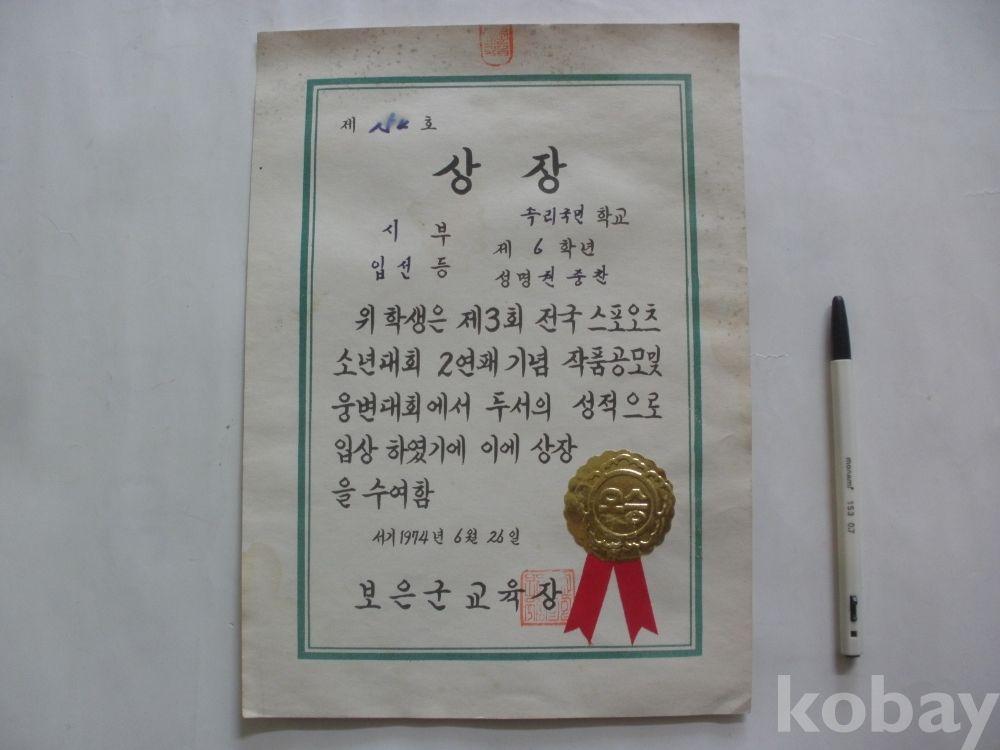 제 호
상 장
속리국민 학교
시 부
제 6 학년
입선 등
성명 권중찬
위 학생은 제3회 전국 스포오츠
소년대회 2연패 기념 작품공모및
웅변대회에서 두서의 성적으로
입상 하였기에 이에 상장
을 수여함
우승
서기 1974년 6월 26일
보은군교육장
monami 153 0.7
kobay